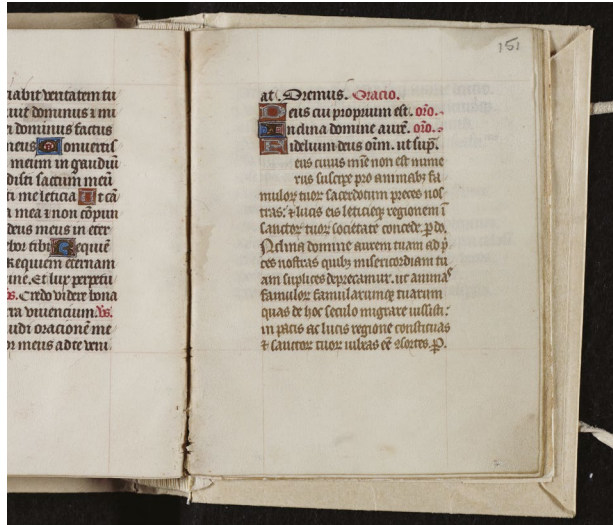 iabit veritatem tu
uiīt dominus ⁊ mi
dominus factus
meus Conuertis
meum in gaudiū
disti saccum meū
ti me leticia Ut cā
a mea ⁊ non cōpun
deus meus in eter
bor tibi Requiē
Requiem eternam
ine. Et lux perpetu
vs. Credo videre bona
rra viuencium. vs.
udi oracionē me
or meus ad te veni
151
at. Oremus. Oracio.
Deus cui proprium est. orō.
Inclina domine aurē. orō.
Fidelium deus oīm. ut sup̄.
eus cuius mīe non est nume
rus suscipe pro animabꝫ fa
mulorꝝ tuorꝝ sacerdotum preces nos
tras: ⁊ lucis eis leticieqꝫ regionem ī
sanctorꝝ tuorꝝ societate concede. p̄ do.
Nclina domine aurem tuam ad p̄
ces nostras quibꝫ misericordiam tu
am suplices deprecamur. ut animas
famulorꝝ famularumqꝫ tuarum
quas de hoc seculo migrare iussisti:
in pacis ac lucis regione constituas
⁊ sanctorꝝ tuorꝝ iubeas eē ꝯsortes. P̄.